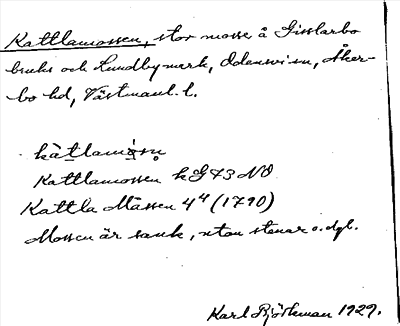 Kattlamossen, stor mosse å Gisslarbo
bruks och Lundby mark, Odensvi sn, Åker-
bo hd, Västmanl. l.
kàtlamòsn
Kattlamossen kG 73 NO
Kattla Måssen 4⁴ (1790)
Mossen är sank, utan stenar o. dyl.
Karl Björkman 1929.